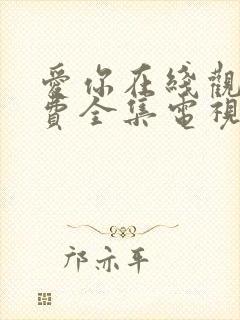 愛你在綫觀
費全集電視
邝亦平